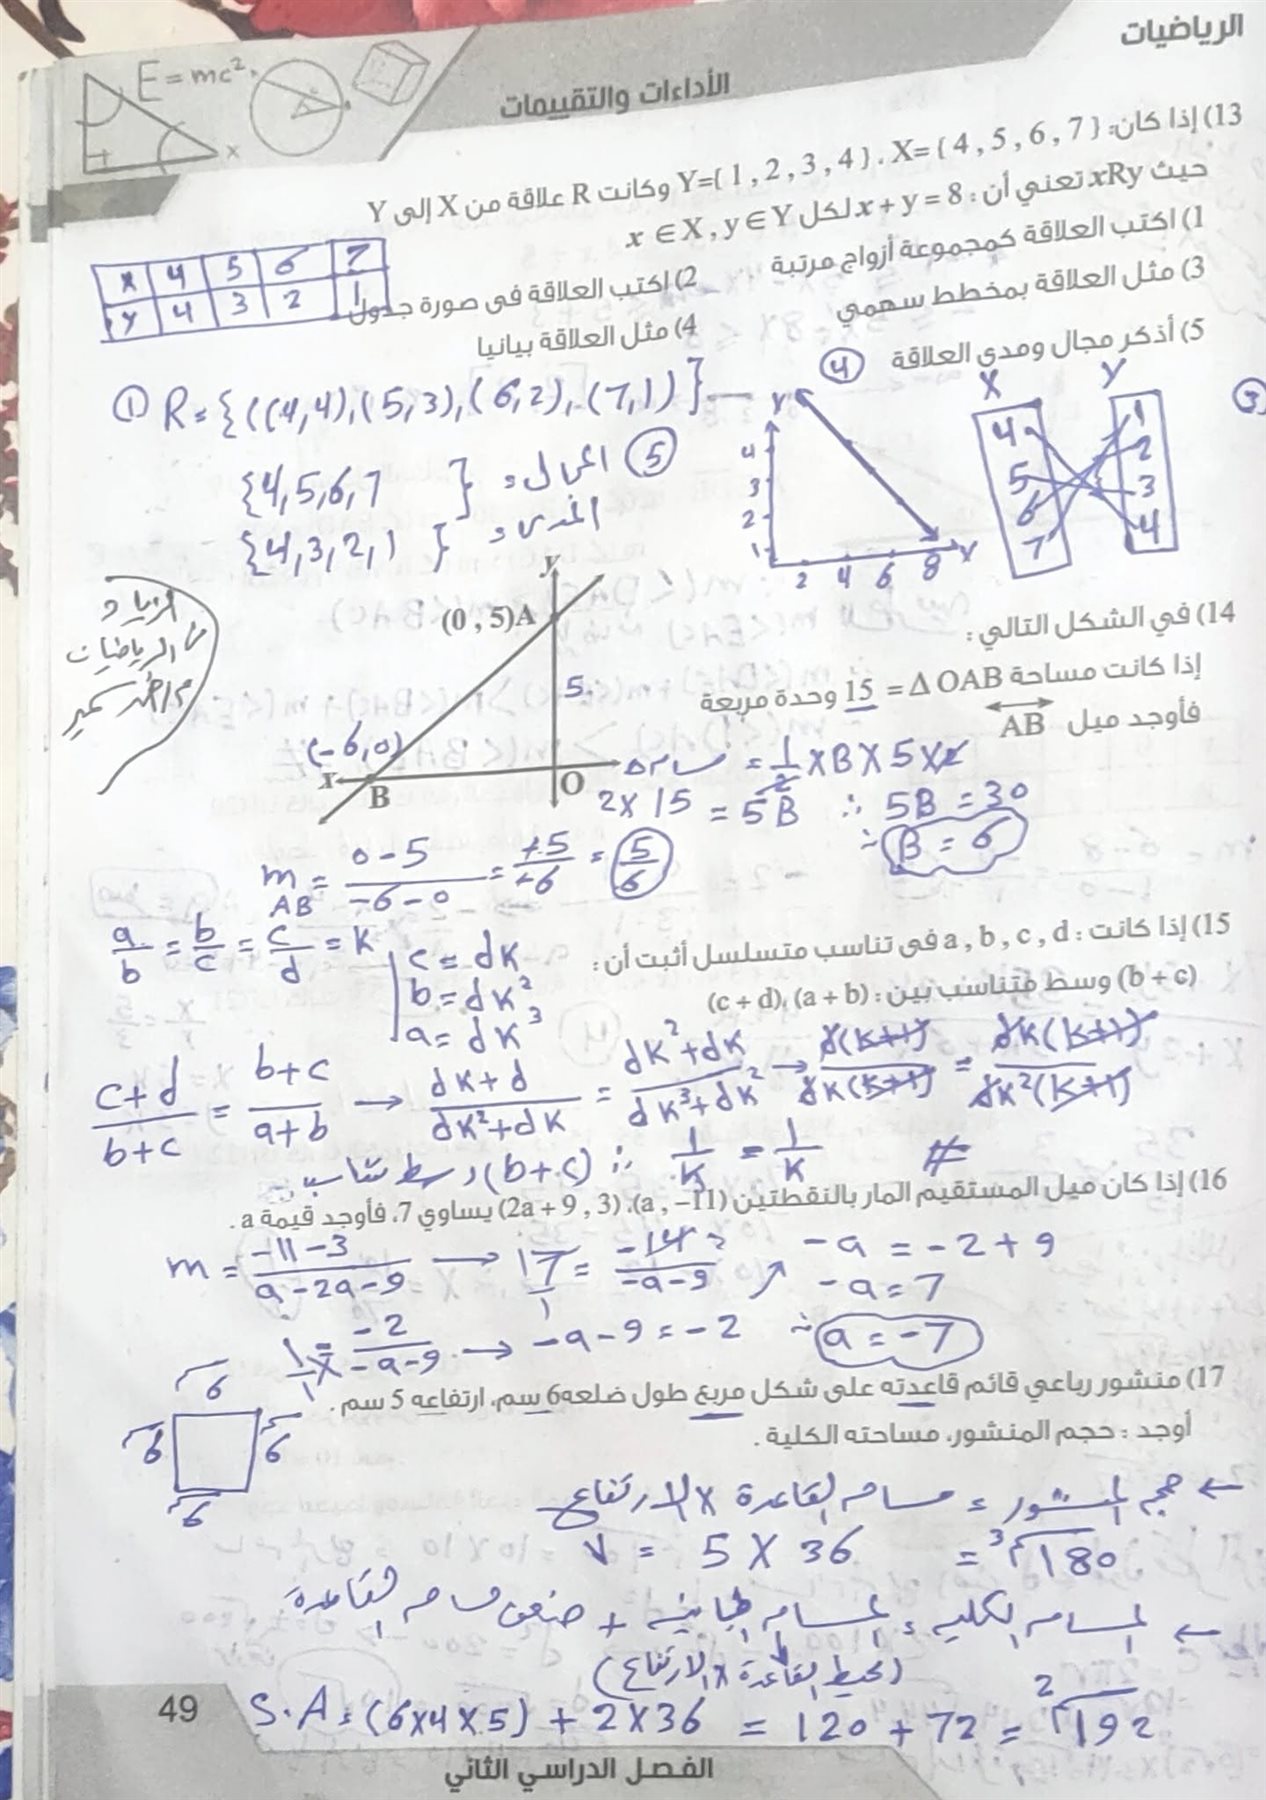 الرياضيات
الأداءات والتقييمات
E = mc²
x
13) إذا كان: X= { 4 , 5 , 6 , 7 } ، Y={ 1 , 2 , 3 , 4 } وكانت R علاقة من X إلى Y
حيث xRy تعني أن : x + y = 8 لكل x ∈ X , y ∈ Y
1) اكتب العلاقة كمجموعة أزواج مرتبة
2) اكتب العلاقة في صورة جدول
x 4 5 6 7
y 4 3 2 1
3) مثل العلاقة بمخطط سهمي
4) مثل العلاقة بيانيا
5) أذكر مجال ومدى العلاقة
① R = {((4,4),(5,3),(6,2),(7,1)}
⑤ المجال = {4,5,6,7}
المدى = {4,3,2,1}
④
y
4
3
2
1
2 4 6 8 x
③
X Y
4 1
5 2
6 3
7 4
14) في الشكل التالي :
إذا كانت مساحة Δ OAB = 15 وحدة مربعة
فأوجد ميل AB
y
(0 , 5)A
5
(-6,0)
x
B
O
الرياضيات
مساحة Δ = 1/2 × B × 5 × 2
2 × 15 = 5B ∴ 5B = 30
∴ B = 6
m AB = 0-5 / -6-0 = +5/+6 = 5/6
15) إذا كانت : a , b , c , d في تناسب متسلسل أثبت أن :
(b + c) وسط متناسب بين : (a + b) ،(c + d)
a/b = b/c = c/d = K
c = dK
b = dK²
a = dK³
c+d / b+c = b+c / a+b → dK+d / dK²+dK = dK²+dK / dK³+dK² → d(K+1) / dK(K+1) = dK(K+1) / dK²(K+1)
1/K = 1/K ∴ (b+c) وسط متناسب #
16) إذا كان ميل المستقيم المار بالنقطتين (a , −11) ،(2a + 9 , 3) يساوي 7، فأوجد قيمة a .
m = -11-3 / a-2a-9 → 17/1 = -14 2 / -a-9
1/1 = -2 / -a-9 → -a-9 = -2
-a = -2+9
-a = 7
∴ a = -7
17) منشور رباعي قائم قاعدته على شكل مربع طول ضلعه6 سم، ارتفاعه 5 سم .
أوجد : حجم المنشور، مساحته الكلية .
6
6 6
6
← حجم المنشور = مساحة القاعدة × الارتفاع
V = 5 × 36 = 180 سم³
← المساحة الكلية = المساحة الجانبية + ضعف مساحة القاعدة
(محيط القاعدة × الارتفاع)
S.A = (6×4×5) + 2×36 = 120 + 72 = 192 سم²
49
الفصل الدراسي الثاني